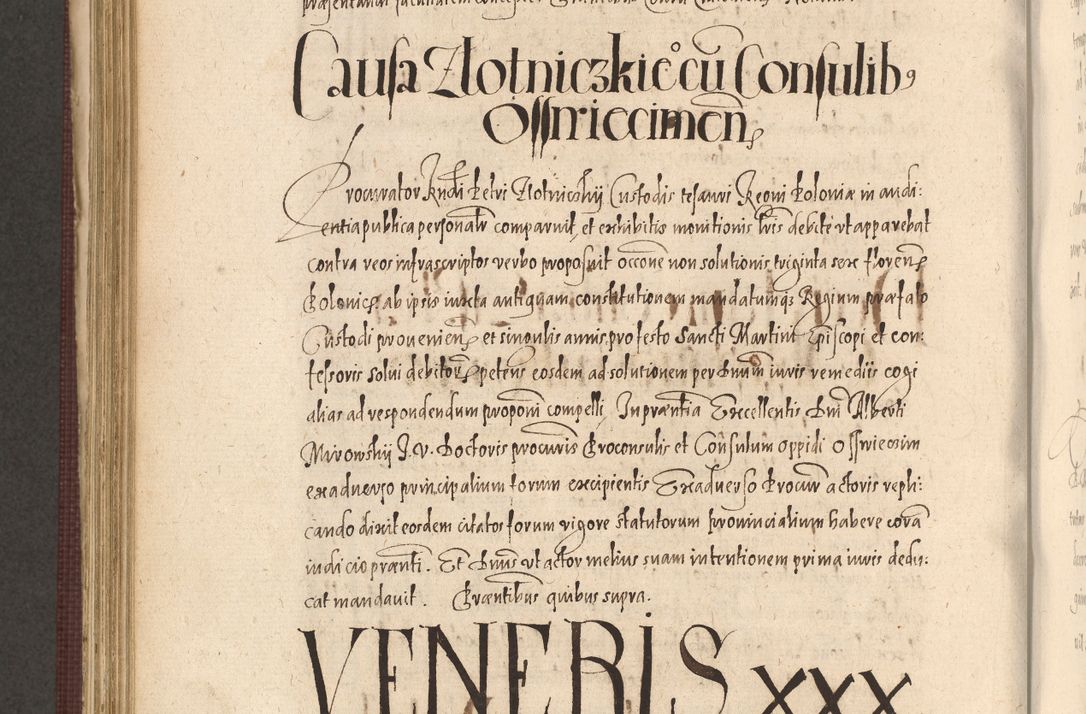 præsentandi facultatem
Causa Zlotniczkie° cū Consulib9
Osswieccimen̄
Procurator Rndi Petri Zlotniczkij Custodis tesauri Regni Poloniæ in audi:
entia publica personalr comparuit, et exhibitis monitionis lris debite ut apparebat
contra reos infrascriptos verbo proposuit occōne non solutionis triginta sex floren̄
Polonica ab ipsis iuxta antiquam constitutionem mandatumq3 Regium præfato
Custodi provenien̄ et singulis annis pro festo Sancti Martini Epīscopi et con:
fessoris solvi debitor petens eosdem ad solutionem per Dnum iuris remediis cogi
alias ad respondendum proponī compelli. In præntia Excellentis Dnī Alberti
Mirowskij J. V. Doctoris procuris Proconsulis et Consulum oppidi Osswieczim
ex adverso principalium forum excipientis Ex adverso Procur actoris repli:
cando dixit eosdem citatos forum vigore statutorum provincialium habere corā
iudicio prænti. Et Dnus ut actor melius suam intentionem prima iuris dedu:
cat mandavit. Præntibus quibus supra.
VENERIS XXX